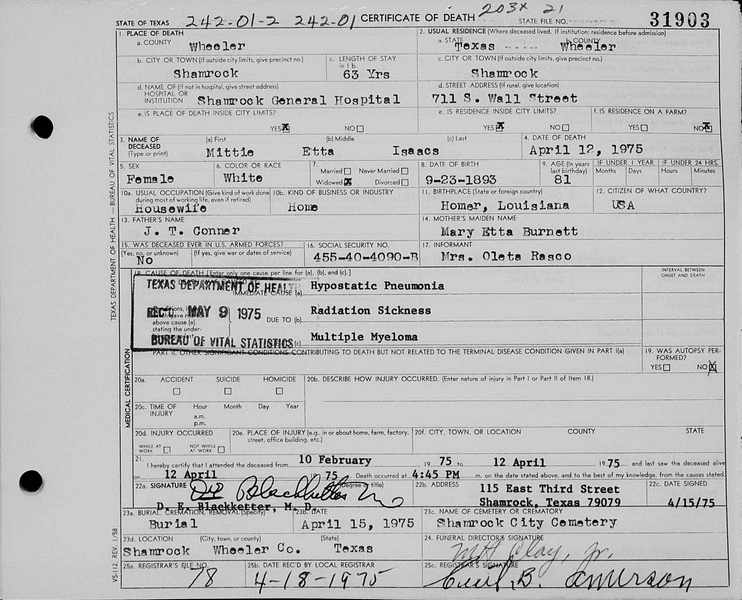 STATE OF TEXAS 242-01-2 242-01 CERTIFICATE OF DEATH 203x 21 STATE FILE NO. 31903
1. PLACE OF DEATH
a. COUNTY Wheeler
2. USUAL RESIDENCE (Where deceased lived. If institution: residence before admission)
a. STATE Texas b. COUNTY Wheeler
b. CITY OR TOWN (If outside city limits, give precinct no.) Shamrock
c. LENGTH OF STAY in 1 b. 63 Yrs
c. CITY OR TOWN (If outside city limits, give precinct no.) Shamrock
d. NAME OF (If not in hospital, give street address) HOSPITAL OR INSTITUTION Shamrock General Hospital
d. STREET ADDRESS (If rural, give location) 711 S. Wall Street
e. IS PLACE OF DEATH INSIDE CITY LIMITS? YES X NO
e. IS RESIDENCE INSIDE CITY LIMITS? YES X NO
f. IS RESIDENCE ON A FARM? YES NO X
3. NAME OF DECEASED (Type or print)
(a) First Mittie (b) Middle Etta (c) Last Isaacs
4. DATE OF DEATH April 12, 1975
5. SEX Female
6. COLOR OR RACE White
7. Married Never Married Widowed X Divorced
8. DATE OF BIRTH 9-23-1893
9. AGE (In years last birthday) 81
IF UNDER 1 YEAR Months Days
IF UNDER 24 HRS. Hours Minutes
10a. USUAL OCCUPATION (Give kind of work done during most of working life, even if retired) Housewife
10b. KIND OF BUSINESS OR INDUSTRY Home
11. BIRTHPLACE (State or foreign country) Homer, Louisiana
12. CITIZEN OF WHAT COUNTRY? USA
13. FATHER'S NAME J. T. Conner
14. MOTHER'S MAIDEN NAME Mary Etta Burnett
15. WAS DECEASED EVER IN U.S. ARMED FORCES? (Yes, no, or unknown) (If yes, give war or dates of service) No
16. SOCIAL SECURITY NO. 455-40-4090-B
17. INFORMANT Mrs. Oleta Rasco
18. CAUSE OF DEATH [Enter only one cause per line for (a), (b), and (c).]
INTERVAL BETWEEN ONSET AND DEATH
TEXAS DEPARTMENT OF HEALTH
REC'D. MAY 9 1975
BUREAU OF VITAL STATISTICS
IMMEDIATE CAUSE (a) Hypostatic Pneumonia
above cause (a) stating the under- DUE TO (b) Radiation Sickness
(c) Multiple Myeloma
PART II. OTHER SIGNIFICANT CONDITIONS CONTRIBUTING TO DEATH BUT NOT RELATED TO THE TERMINAL DISEASE CONDITION GIVEN IN PART I(a)
19. WAS AUTOPSY PERFORMED? YES NO X
20a. ACCIDENT SUICIDE HOMICIDE
20b. DESCRIBE HOW INJURY OCCURRED. (Enter nature of injury in Part I or Part II of Item 18.)
20c. TIME OF INJURY Hour Month Day Year a.m. p.m.
20d. INJURY OCCURRED WHILE AT WORK NOT WHILE AT WORK
20e. PLACE OF INJURY (e.g., in or about home, farm, factory, street, office building, etc.)
20f. CITY, TOWN, OR LOCATION COUNTY STATE
21. I hereby certify that I attended the deceased from 10 February 1975 to 12 April 1975 and last saw the deceased alive
12 April 1975 Death occurred at 4:45 PM m. on the date stated above, and to the best of my knowledge, from the causes stated.
22a. SIGNATURE DE Blackketter MD
D. E. Blackketter, M. D.
22b. ADDRESS 115 East Third Street
Shamrock, Texas 79079
22c. DATE SIGNED 4/15/75
23a. BURIAL, CREMATION, REMOVAL (Specify) Burial
23b. DATE April 15, 1975
23c. NAME OF CEMETERY OR CREMATORY Shamrock City Cemetery
23d. LOCATION (City, town, or county) (State) Shamrock Wheeler Co. Texas
24. FUNERAL DIRECTOR'S SIGNATURE Clay, Jr.
25a. REGISTRAR'S FILE NO. 78
25b. DATE REC'D BY LOCAL REGISTRAR 4-18-1975
25c. REGISTRAR'S SIGNATURE B.
TEXAS DEPARTMENT OF HEALTH — BUREAU OF VITAL STATISTICS
MEDICAL CERTIFICATION
VS-112, REV. 1/58